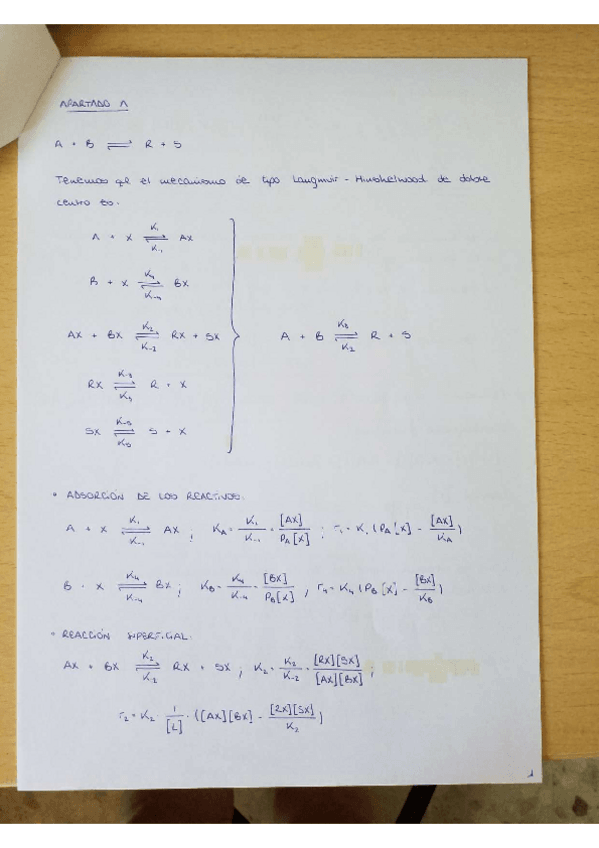 APARTADO A
A + B ⇌ R + S
Tenemos qe el mecanismo de tipo Langmuir - Hinshelwood de doble
centro es.
A + X ⇌ AX K₁ K₋₁
B + X ⇌ BX K₄ K₋₄
AX + BX ⇌ RX + SX K₂ K₋₂
A + B ⇌ R + S
RX ⇌ R + X K₋₃ K₃
SX ⇌ S + X K₋₅ K₅
• ADSORCIÓN DE LOS REACTIVOS:
A + X ⇌ AX ; K_A = K₁/K₋₁ = [AX]/P_A[X] ; r₁ = K₁ (P_A[X] - [AX]/K_A)
B + X ⇌ BX ; K_B = K₄/K₋₄ = [BX]/P_B[X] ; r₄ = K₄ (P_B[X] - [BX]/K_B)
• REACCIÓN SUPERFICIAL:
AX + BX ⇌ RX + SX ; K₂ = K₂/K₋₂ = [RX][SX]/[AX][BX] ;
r₂ = K₂ · 1/[L] · ([AX][BX] - [RX][SX]/K₂)
1